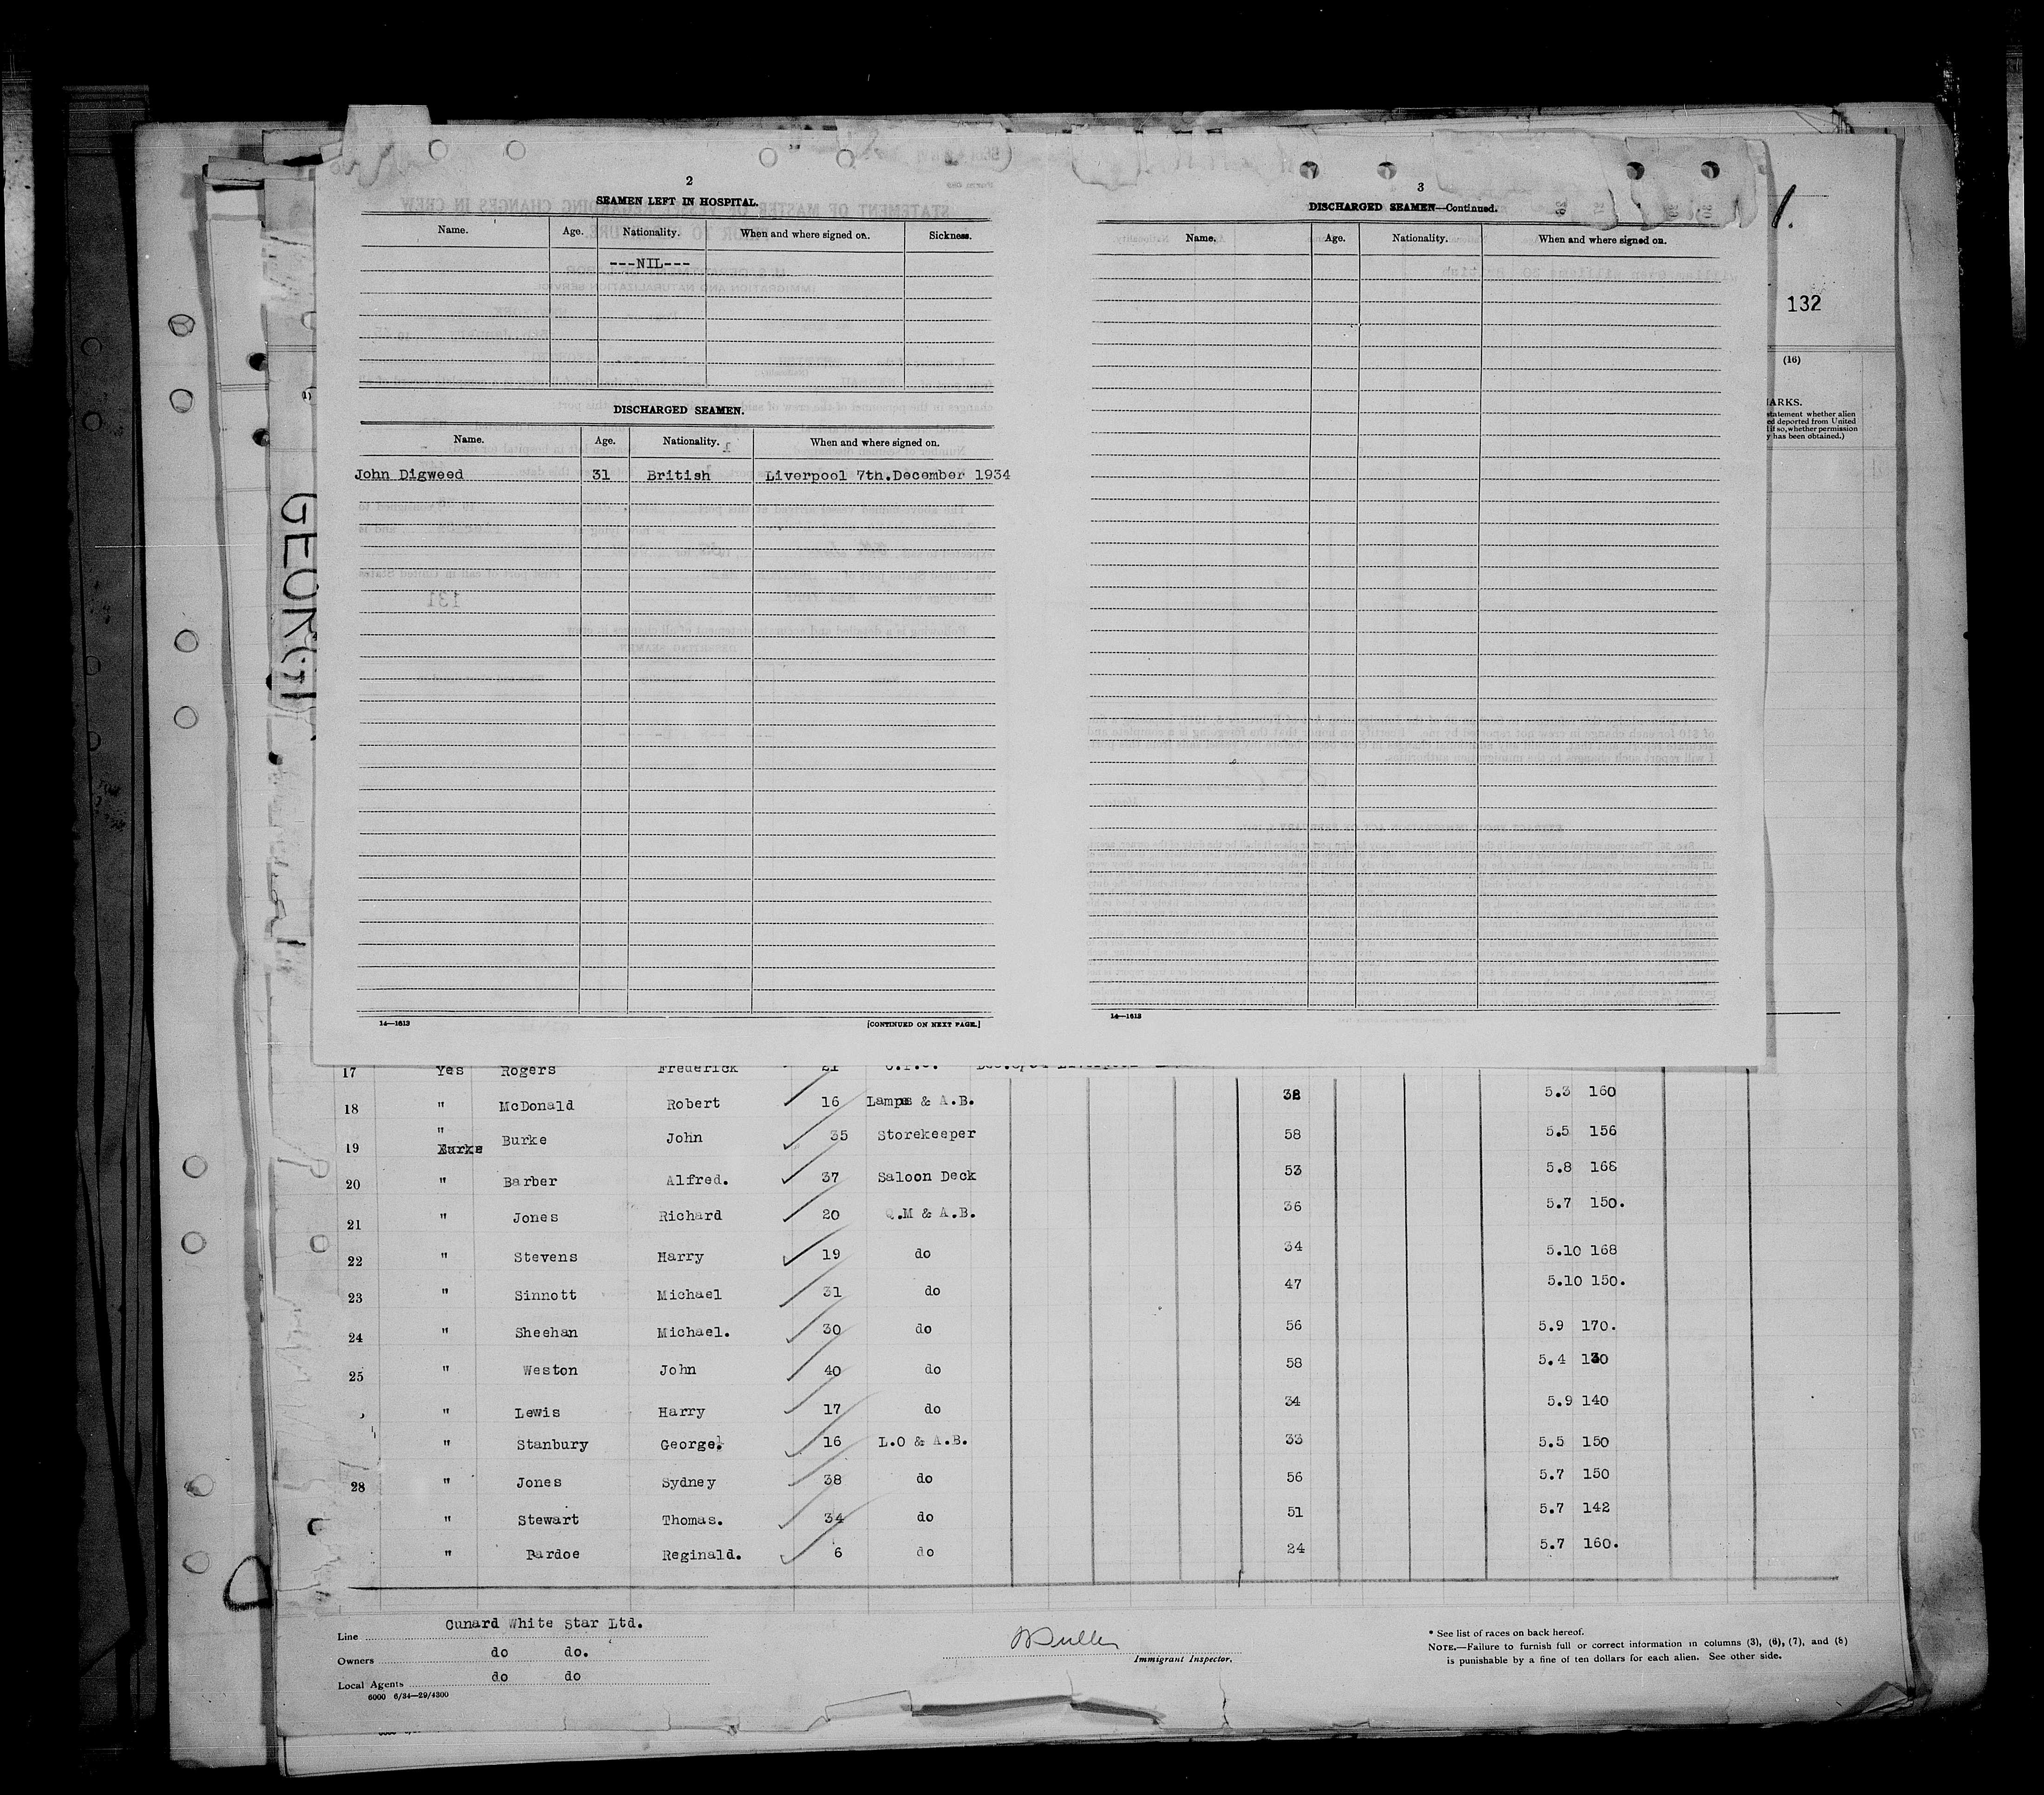 2
SEAMEN LEFT IN HOSPITAL.
Name. Age. Nationality. When and where signed on. Sickness.
---NIL---
DISCHARGED SEAMEN.
Name. Age. Nationality. When and where signed on.
John Digweed 31 British Liverpool 7th.December 1934
14—1613 [CONTINUED ON NEXT PAGE.]
3
DISCHARGED SEAMEN—Continued.
Name. Age. Nationality. When and where signed on.
14—1613
1.
132
(16)
statement whether alien
ed deported from United
if so, whether permission
y has been obtained.)
GEORGI
17 Yes Rogers Frederick 21
18 " McDonald Robert 16 Lamps & A.B. 38 5.3 160
19 " Burke John 35 Storekeeper 58 5.5 156
20 " Barber Alfred. 37 Saloon Deck 53 5.8 168
21 " Jones Richard 20 Q.M & A.B. 36 5.7 150.
22 " Stevens Harry 19 do 34 5.10 168
23 " Sinnott Michael 31 do 47 5.10 150.
24 " Sheehan Michael. 30 do 56 5.9 170.
25 " Weston John 40 do 58 5.4 130
" Lewis Harry 17 do 34 5.9 140
" Stanbury George. 16 L.O & A.B. 33 5.5 150
28 " Jones Sydney 38 do 56 5.7 150
" Stewart Thomas. 34 do 51 5.7 142
" Pardoe Reginald. 6 do 24 5.7 160.
Line Cunard White Star Ltd.
Owners do do.
Local Agents do do
6000 6/34—29/4300
Immigrant Inspector.
* See list of races on back hereof.
NOTE.—Failure to furnish full or correct information in columns (3), (6), (7), and (8)
is punishable by a fine of ten dollars for each alien. See other side.